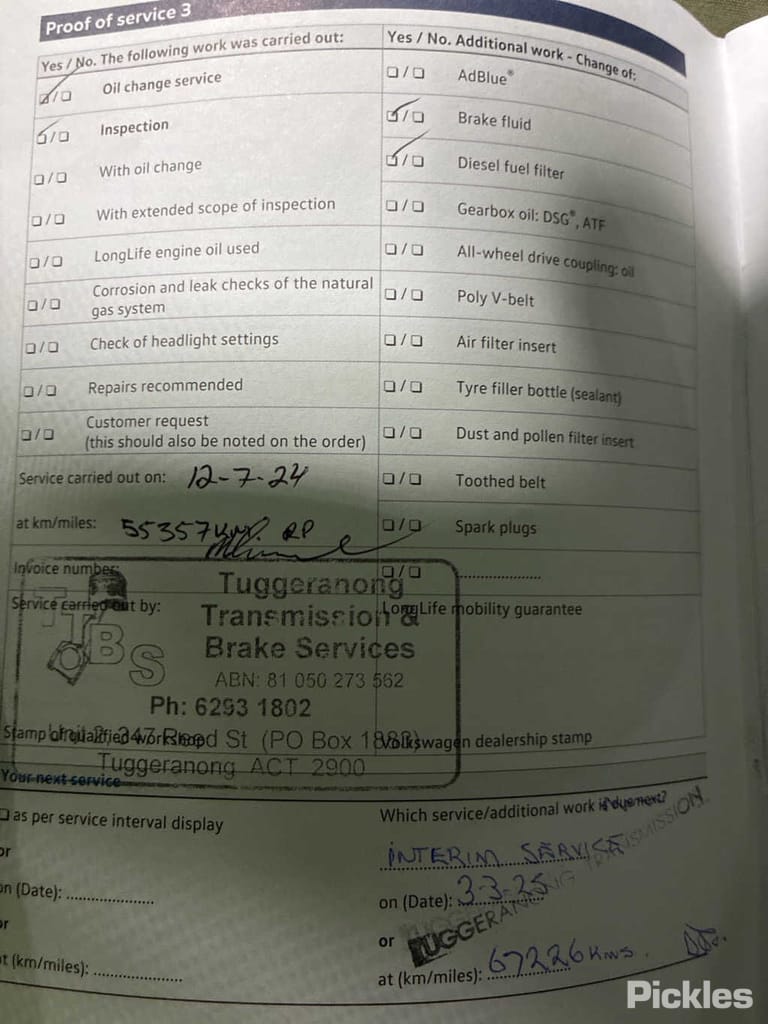 Proof of service 3
Yes / No. The following work was carried out:
☑/❏ Oil change service
☑/❏ Inspection
❏/❏ With oil change
❏/❏ With extended scope of inspection
❏/❏ LongLife engine oil used
❏/❏ Corrosion and leak checks of the natural
gas system
❏/❏ Check of headlight settings
❏/❏ Repairs recommended
❏/❏ Customer request
(this should also be noted on the order)
Service carried out on: 12-7-24
at km/miles: 55357 kms. RP
Invoice number:
Service carried out by:
TTBS
Tuggeranong
Transmission &
Brake Services
ABN: 81 050 273 562
Ph: 6293 1802
Unit 2, 347 Reed St (PO Box 1883)
Tuggeranong ACT 2900
Stamp of qualified workshop
Yes / No. Additional work - Change of:
❏/❏ AdBlue®
☑/❏ Brake fluid
☑/❏ Diesel fuel filter
❏/❏ Gearbox oil: DSG®, ATF
❏/❏ All-wheel drive coupling: oil
❏/❏ Poly V-belt
❏/❏ Air filter insert
❏/❏ Tyre filler bottle (sealant)
❏/❏ Dust and pollen filter insert
❏/❏ Toothed belt
❏/❏ Spark plugs
❏/❏ ....................
LongLife mobility guarantee
Volkswagen dealership stamp
Your next service
❏ as per service interval display
or
on (Date): ....................
or
at (km/miles): ....................
Which service/additional work is due next?
INTERIM SERVICE
on (Date): 3-3-25
or
TUGGERANONG TRANSMISSION
at (km/miles): 67226 KMS.
Pickles